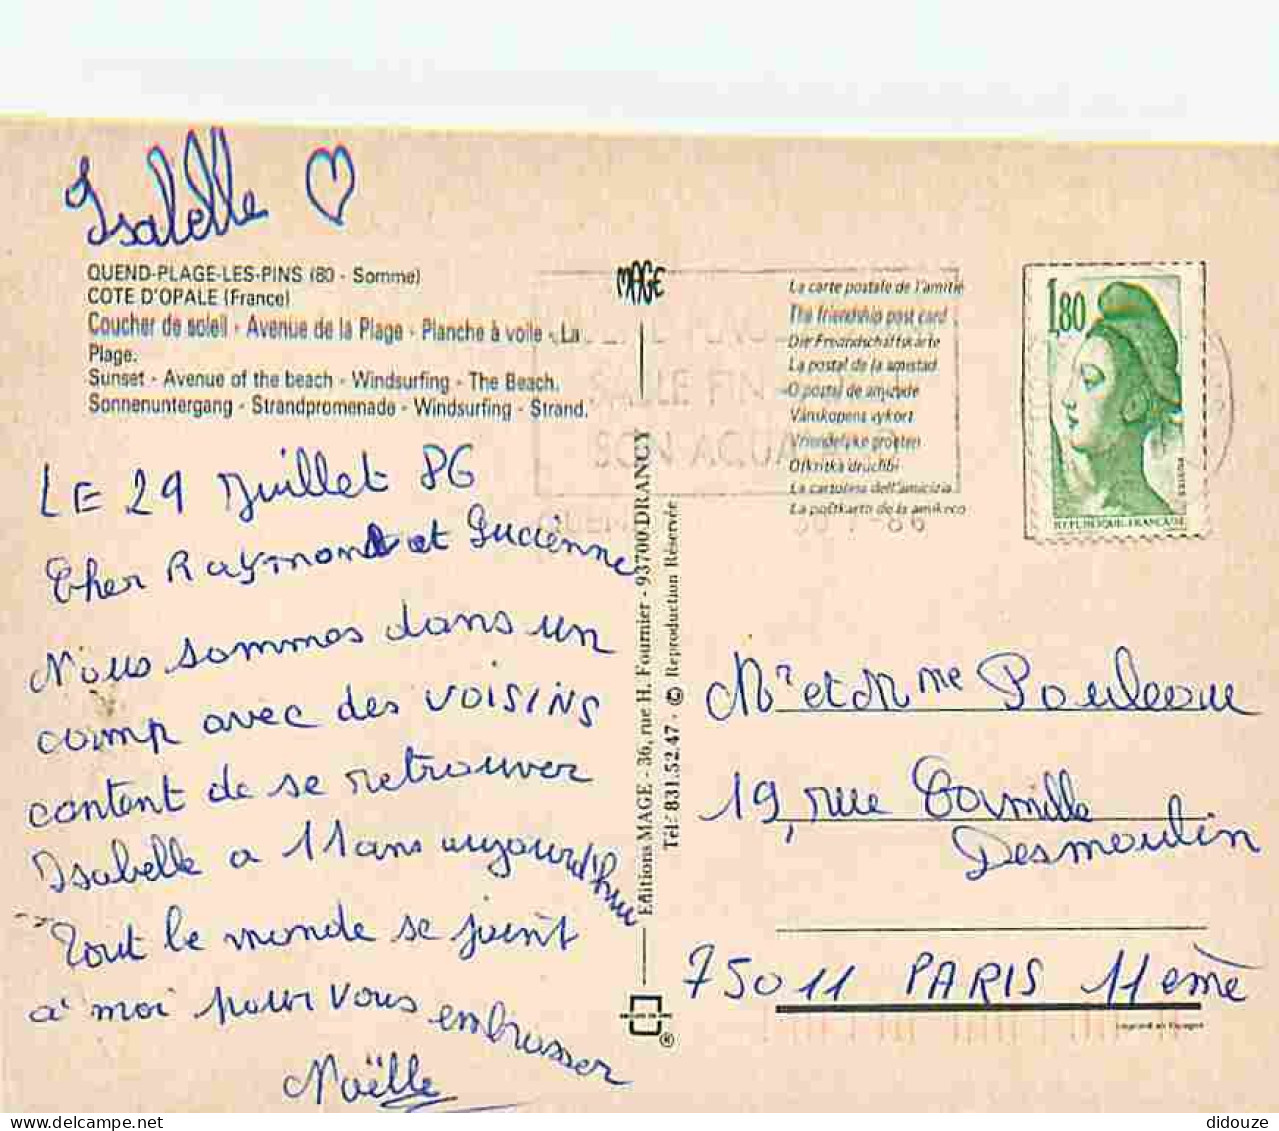 Isabelle
QUEND-PLAGE-LES-PINS (80 - Somme)
COTE D'OPALE (France)
Coucher de soleil - Avenue de la Plage - Planche à voile - La
Plage.
Sunset - Avenue of the beach - Windsurfing - The Beach.
Sonnenuntergang - Strandpromenade - Windsurfing - Strand.
LE 29 Juillet 86
Cher Raymond et Lucienne
Nous sommes dans un
camp avec des VOISINS
content de se retrouver
Isabelle a 11 ans aujourd'hui
Tout le monde se joint
à moi pour vous embrasser
Noëlle
MAGE
Editions MAGE - 36, rue H. Fournier - 93700 DRANCY
Tél: 831.52.47 - © Reproduction Réservée
®
La carte postale de l'amitié
The friendship post card
Die Freundschaftskarte
La postal de la amistad
O postal de amizade
Vänskapens vykort
Vriendelijke groeten
Otkritka druchbi
La cartolina dell'amicizia
La poŝtkarto de la amikeco
SABLE FIN
SON AQUA
QUEND
30-7-86
1,80
REPUBLIQUE-FRANÇAISE
POSTES
Mr et Mme Pouleau
19, rue Camille
Desmoulin
75011 PARIS 11ème
Imprimé en Espagne
didouze